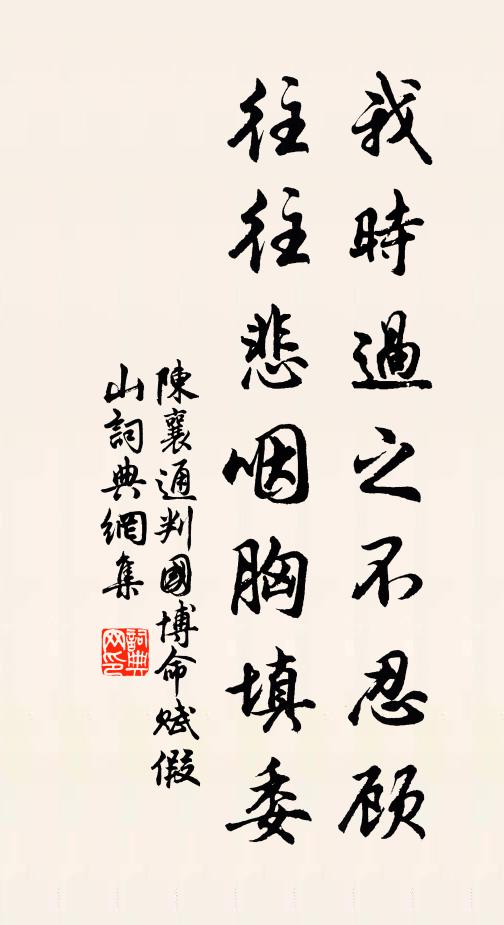 我時過之不忍顧
往往悲咽胸填委
陳襄通判國博命賦假
山詞典網集
詞典
网印